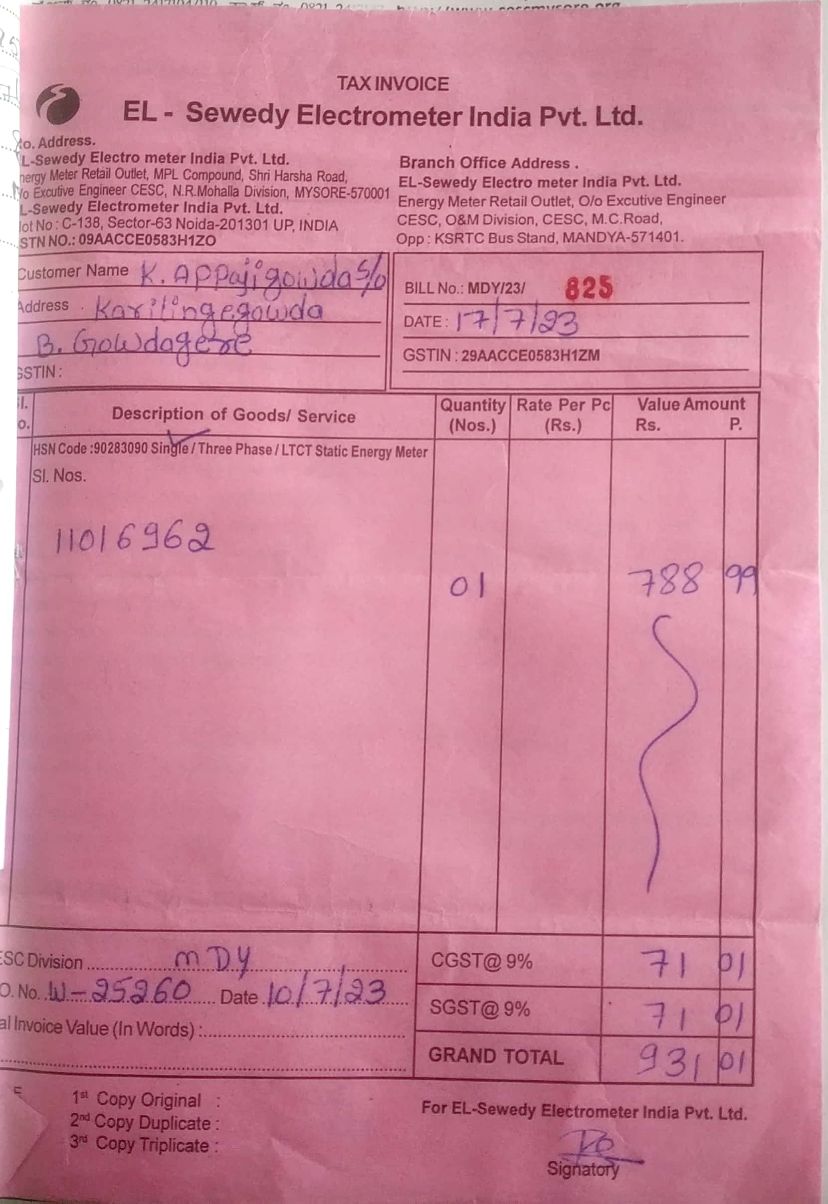 TAX INVOICE
EL - Sewedy Electrometer India Pvt. Ltd.
o. Address.
L-Sewedy Electro meter India Pvt. Ltd.
nergy Meter Retail Outlet, MPL Compound, Shri Harsha Road,
/o Excutive Engineer CESC, N.R.Mohalla Division, MYSORE-570001
L-Sewedy Electrometer India Pvt. Ltd.
lot No : C-138, Sector-63 Noida-201301 UP, INDIA
STN NO.: 09AACCE0583H1ZO
Branch Office Address .
EL-Sewedy Electro meter India Pvt. Ltd.
Energy Meter Retail Outlet, O/o Excutive Engineer
CESC, O&M Division, CESC, M.C.Road,
Opp : KSRTC Bus Stand, MANDYA-571401.
Customer Name K. Appajigowda S/o
Address . Karilingegowda
B. Gowdagere
GSTIN :
BILL No.: MDY/23/ 825
DATE : 17/7/23
GSTIN : 29AACCE0583H1ZM
Sl. No. Description of Goods/ Service Quantity (Nos.) Rate Per Pc (Rs.) Value Amount Rs. P.
HSN Code :90283090 Single / Three Phase / LTCT Static Energy Meter
Sl. Nos.
11016962
01 788 99
ESC Division MDY
O. No. W-25260 Date 10/7/23
al Invoice Value (In Words) :
CGST@ 9% 71 01
SGST@ 9% 71 01
GRAND TOTAL 931 01
1st Copy Original :
2nd Copy Duplicate :
3rd Copy Triplicate :
For EL-Sewedy Electrometer India Pvt. Ltd.
Signatory